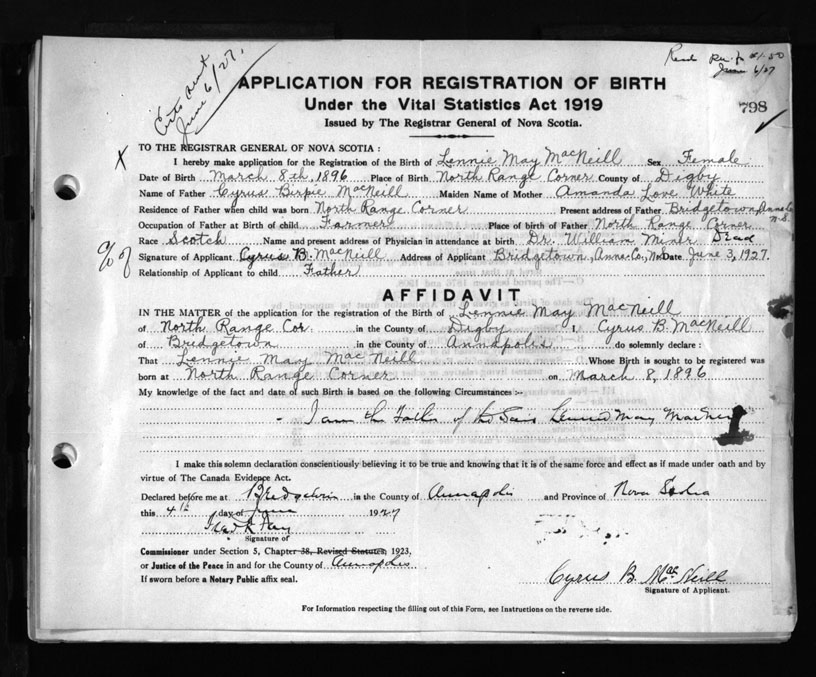 Recd
June 6/27
June 6/27.
APPLICATION FOR REGISTRATION OF BIRTH
Under the Vital Statistics Act 1919
798
Issued by The Registrar General of Nova Scotia.
X TO THE REGISTRAR GENERAL OF NOVA SCOTIA :
I hereby make application for the Registration of the Birth of Lennie May MacNeill Sex Female
Date of Birth March 8th, 1896 Place of Birth North Range Corner County of Digby
Name of Father Cyrus MacNeill Maiden Name of Mother Amanda Love White
Residence of Father when child was born North Range Corner Present address of Father Bridgetown, Anna Co N.S.
Occupation of Father at Birth of child Farmer Place of birth of Father North Range Corner
Race Scotch Name and present address of Physician in attendance at birth Dr. William Dead
% of Signature of Applicant Cyrus B. MacNeill Address of Applicant Bridgetown, Anna. Co, N.S. Date June 3, 1927.
Relationship of Applicant to child Father
AFFIDAVIT
IN THE MATTER of the application for the registration of Birth of Lennie May MacNeill
of North Range Cor. in the County of Digby I, Cyrus B. MacNeill
of Bridgetown in the County of Annapolis do solemnly declare :
That Lennie May MacNeill Whose Birth is sought to be registered was
born at North Range Corner on March 8, 1896
My knowledge of the fact and date of such Birth is based on the following Circumstances :-
- I am the Father of the Said Lennie May MacNeill
I make this solemn declaration conscientiously believing it to be true and knowing that it is of the same force and effect as if made under oath and by
virtue of The Canada Evidence Act.
Declared before me at Bridgetown in the County of Annapolis and Province of Nova Scotia
this 4th day of June 1927
Signature of
Commissioner under Section 5, Chapter 38, Revised Statutes, 1923,
or Justice of the Peace in and for the County of Annapolis
If sworn before a Notary Public affix seal.
Cyrus B. MacNeill
Signature of Applicant.
For Information respecting the filling out of this Form, see Instructions on the reverse side.